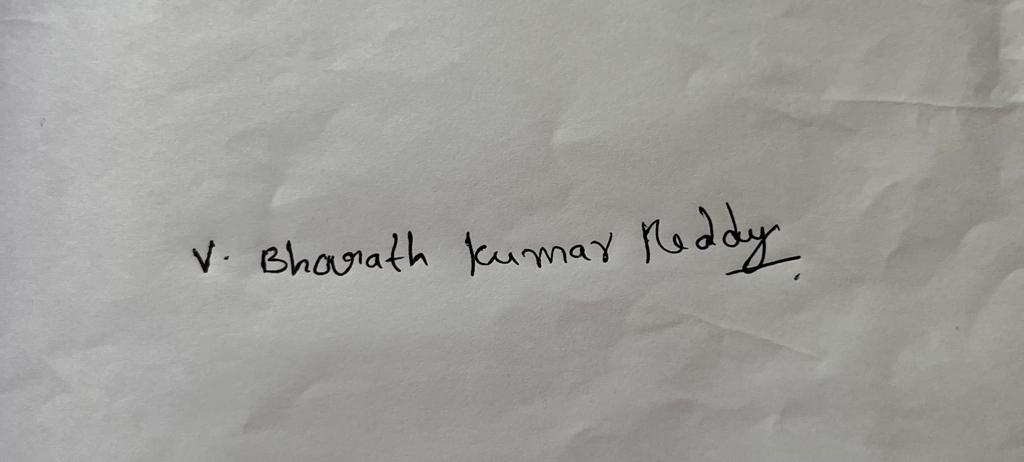 V. Bharath Kumar Reddy.